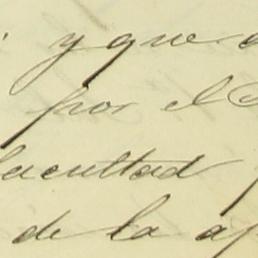 y que
por el
facultad
de la